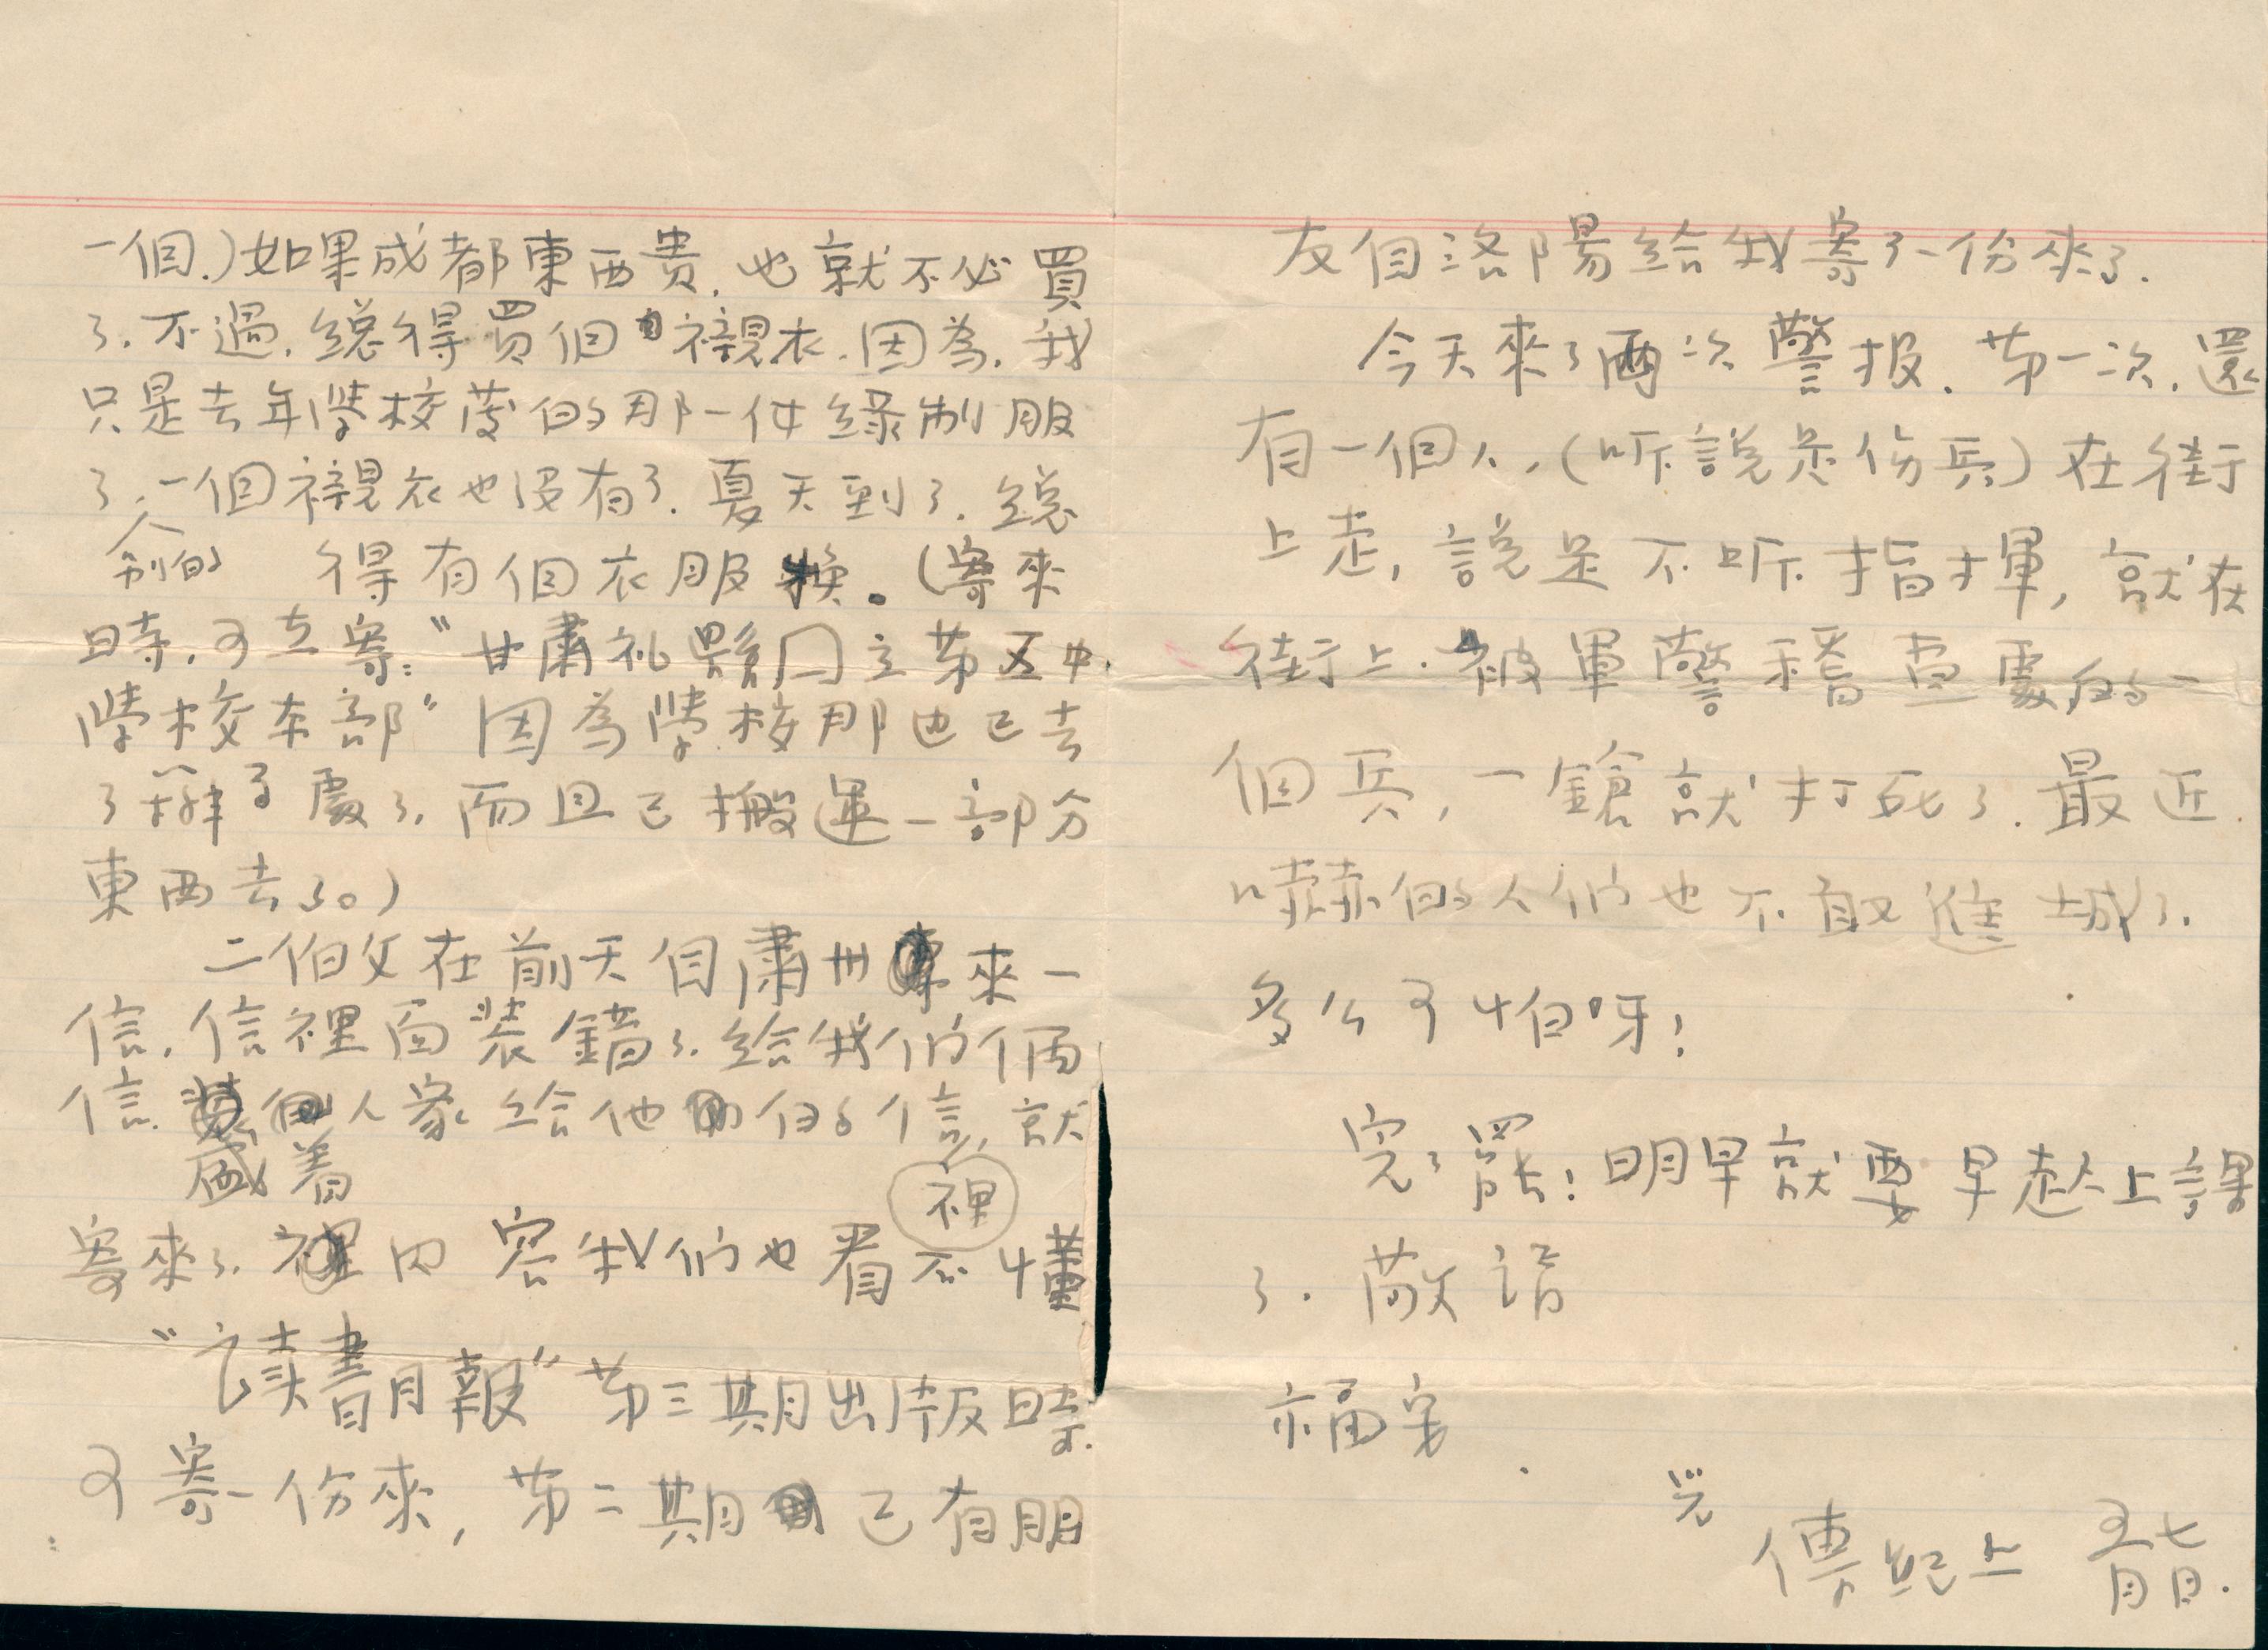 一個.)如果成都東西貴.也就不必買
了.不過.總得買個襯衣.因為.我
只是去年學校發的那一件綠制服
了.一個襯衣也没有了.夏天到了.總
得有個衣服換。(寄來
別的
時.可立寄:“甘肅礼縣国立第五中
學校本部”因為學校那边已去
了辦了處了.而且已搬運一部分
東西去了。)
二伯父在前天自肅州來一
信.信裡面装錯了.給我们倆
信.人家給他的信,就
盛着
裡
寄來了.内容我们也看不懂
“读書月報”第三期出版時.
可寄一份來,第二期已有朋
友自洛陽給我寄了一份來了.
今天來了兩次警报.第一次.還
有一個人,(听說是伤兵)在街
上走,說是不听指揮,就在
街上.被軍警稽查處的一
個兵,一鎗就打死了.最近.
嚇的人们也不敢進城了.
多么可怕呀!
完了罷!明早就要早起上課
了.敬請
福安.
兄
傳紀上 五月七日.